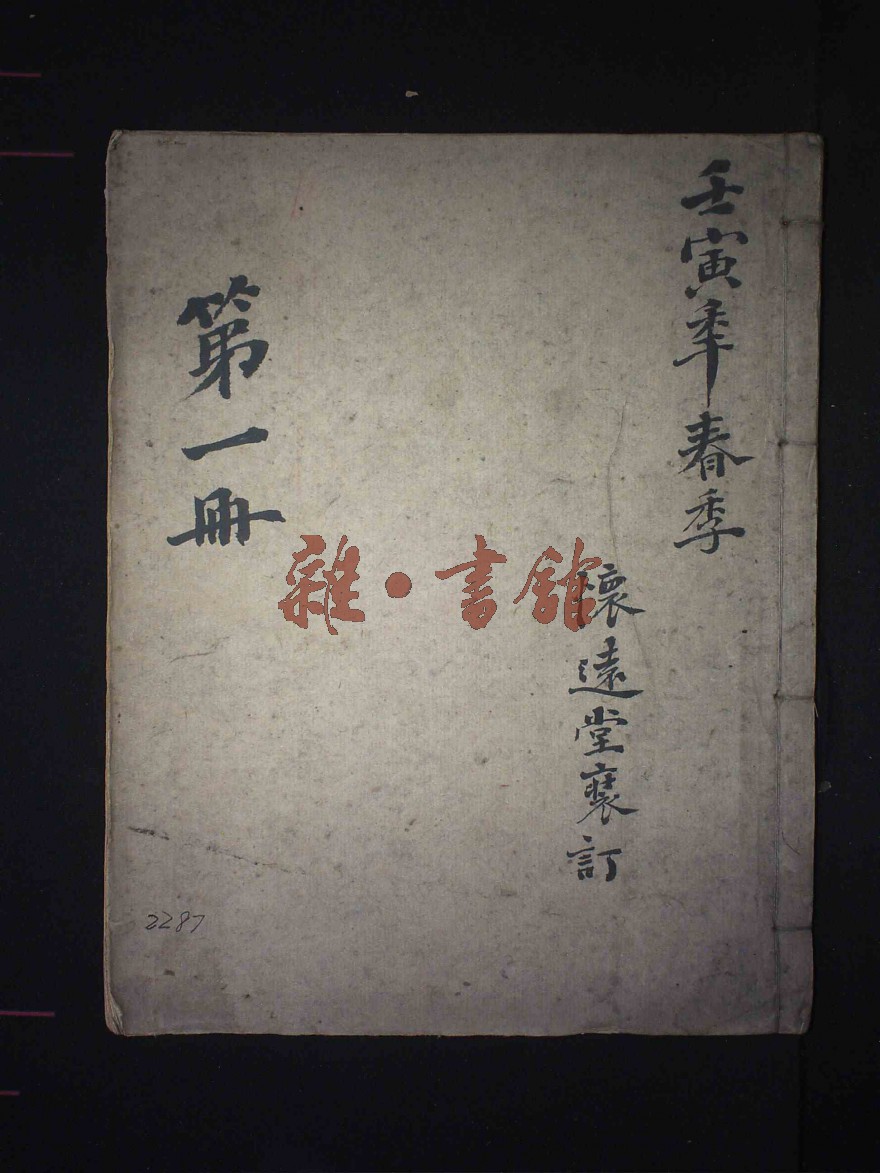 壬寅秊春季
懷遠堂訂
第一冊
雜·書館
2287